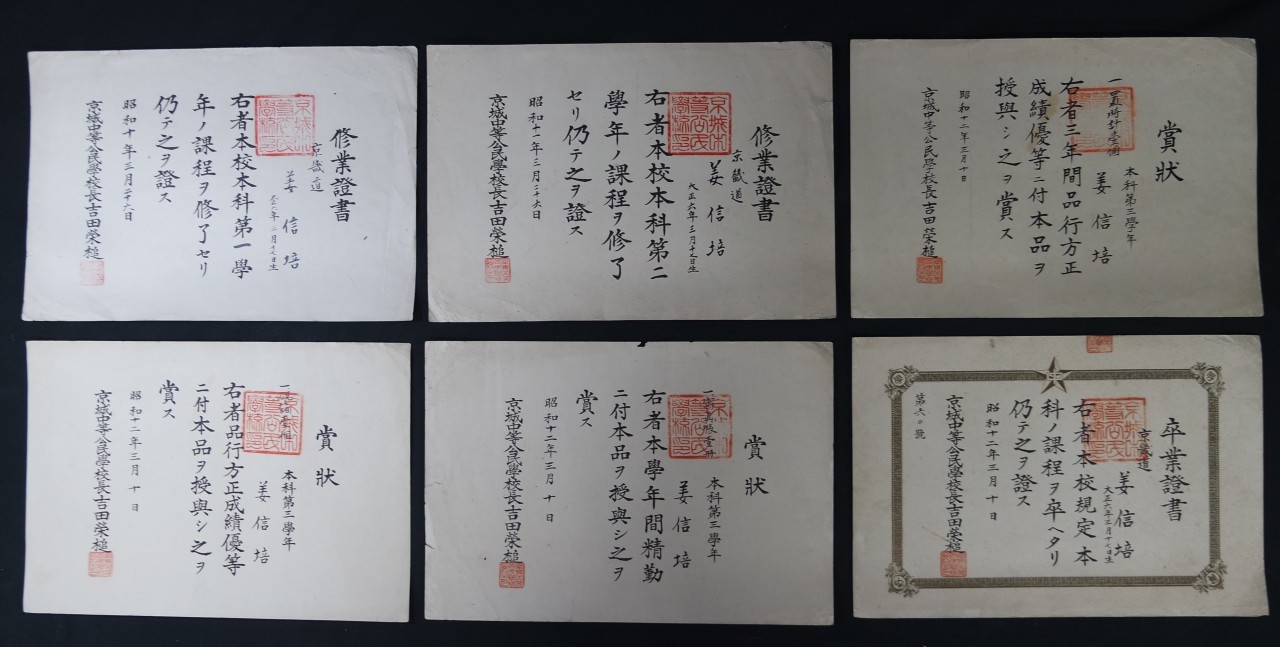 修業證書
京畿道
姜信培
大正六年三月十七日生
右者本校本科第一學
年ノ課程ヲ修了セリ
仍テ之ヲ證ス
昭和十年三月二十六日
京城中等公民學校長吉田榮槌
修業證書
京畿道
姜信培
大正六年三月十七日生
右者本校本科第二
學年ノ課程ヲ修了
セリ仍テ之ヲ證ス
昭和十一年三月二十六日
京城中等公民學校長吉田榮槌
賞狀
本科第三學年
姜信培
一置時計壹個
右者三年間品行方正
成績優等ニ付本品ヲ
授與シ之ヲ賞ス
昭和十二年三月十日
京城中等公民學校長吉田榮槌
賞狀
本科第三學年
姜信培
右者品行方正成績優等
ニ付本品ヲ授與シ之ヲ
賞ス
昭和十二年三月十日
京城中等公民學校長吉田榮槌
賞狀
本科第三學年
姜信培
右者本學年間精勤
ニ付本品ヲ授與シ之ヲ
賞ス
昭和十二年三月十日
京城中等公民學校長吉田榮槌
卒業證書
京畿道
姜信培
大正六年三月十七日生
右者本校規定本
科ノ課程ヲ卒ヘタリ
仍テ之ヲ證ス
昭和十二年三月十日
京城中等公民學校長吉田榮槌